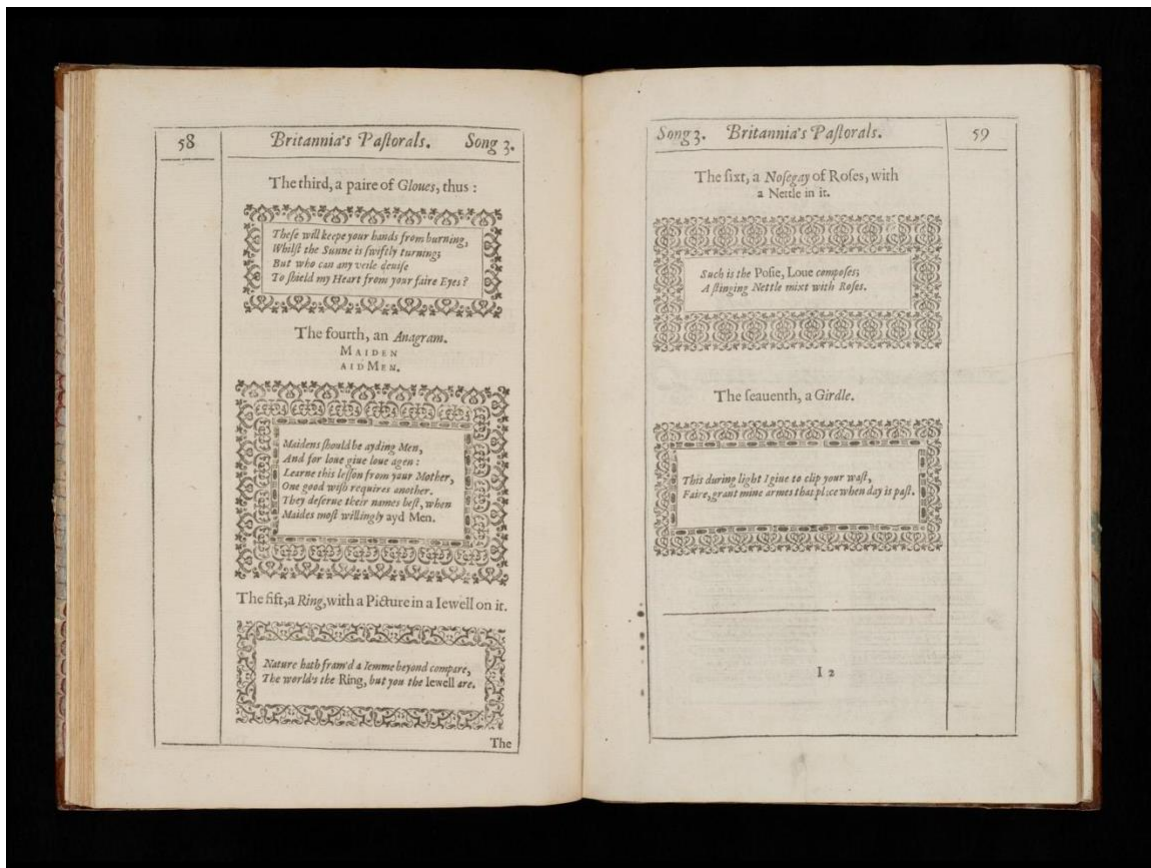 58 Britannia's Paſtorals. Song 3.
The third, a paire of Gloues, thus :
Theſe will keepe your hands from burning,
Whilſt the Sunne is ſwiftly turning;
But who can any veile deuiſe
To ſhield my Heart from your faire Eyes?
The fourth, an Anagram.
MAIDEN
AIDMEN.
Maidens ſhould be ayding Men,
And for loue giue loue agen :
Learne this leſſon from your Mother,
One good wiſh requires another.
They deſerue their names beſt, when
Maides moſt willingly ayd Men.
The fift, a Ring, with a Picture in a Iewell on it.
Nature hath fram'd a Iemme beyond compare,
The world's the Ring, but you the Iewell are.
The
Song 3. Britannia's Paſtorals. 59
The ſixt, a Noſegay of Roſes, with
a Nettle in it.
Such is the Poſie, Loue compoſes;
A ſtinging Nettle mixt with Roſes.
The ſeauenth, a Girdle.
This during light I giue to clip your waſt,
Faire, grant mine armes that place when day is paſt.
I 2